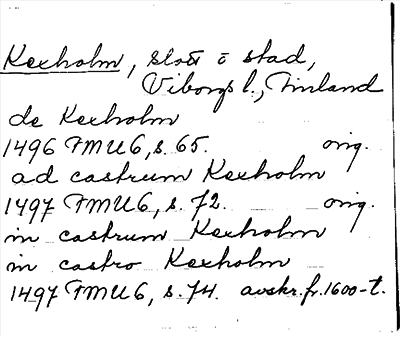 Kexholm, slott o stad,
Viborgs l., Finland
de Kexholm
1496 FMU 6, s. 65. orig.
ad castrum Kexholm
1497 FMU 6, s. 72. orig.
in castrum Kexholm
in castro Kexholm
1497 FMU 6, s. 74. avskr. fr. 1600-t.